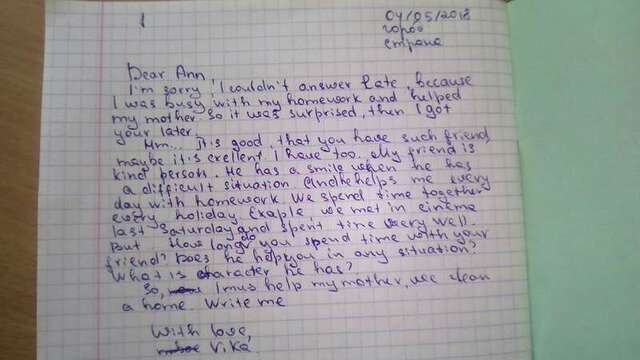 1
04/05/2018
город
страна
Dear Ann,
I'm sorry, I couldn't answer late because
I was busy with my homework and helped
my mother. So it was surprised, then I got
your later.
Hm... It's good, that you have such friend,
maybe it's exellent I have too. My friend is
kind person. He has a smile when he has
a difficult situation. And he helps me every
day with homework. We spend time together
every holiday. Exaple, we met in cinema
last Saturday and spent time very well.
But How long do you spend time with your
friend? Does he help you in any situation?
What is character he has?
So, I mus help my mother, we clean
a home. Write me
With love,
Vika.